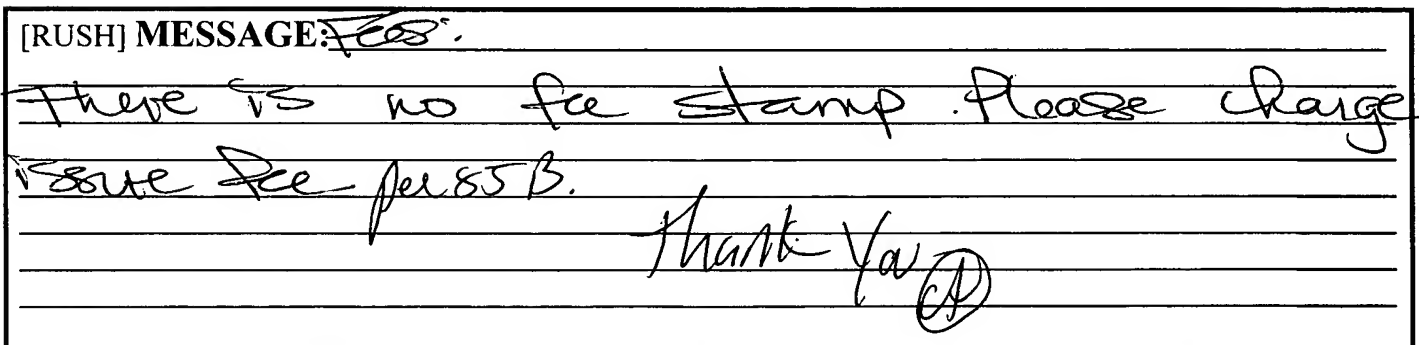 [RUSH] MESSAGE: Fees.
There is no fee stamp. Please charge
issue fee per 85B.
Thank You